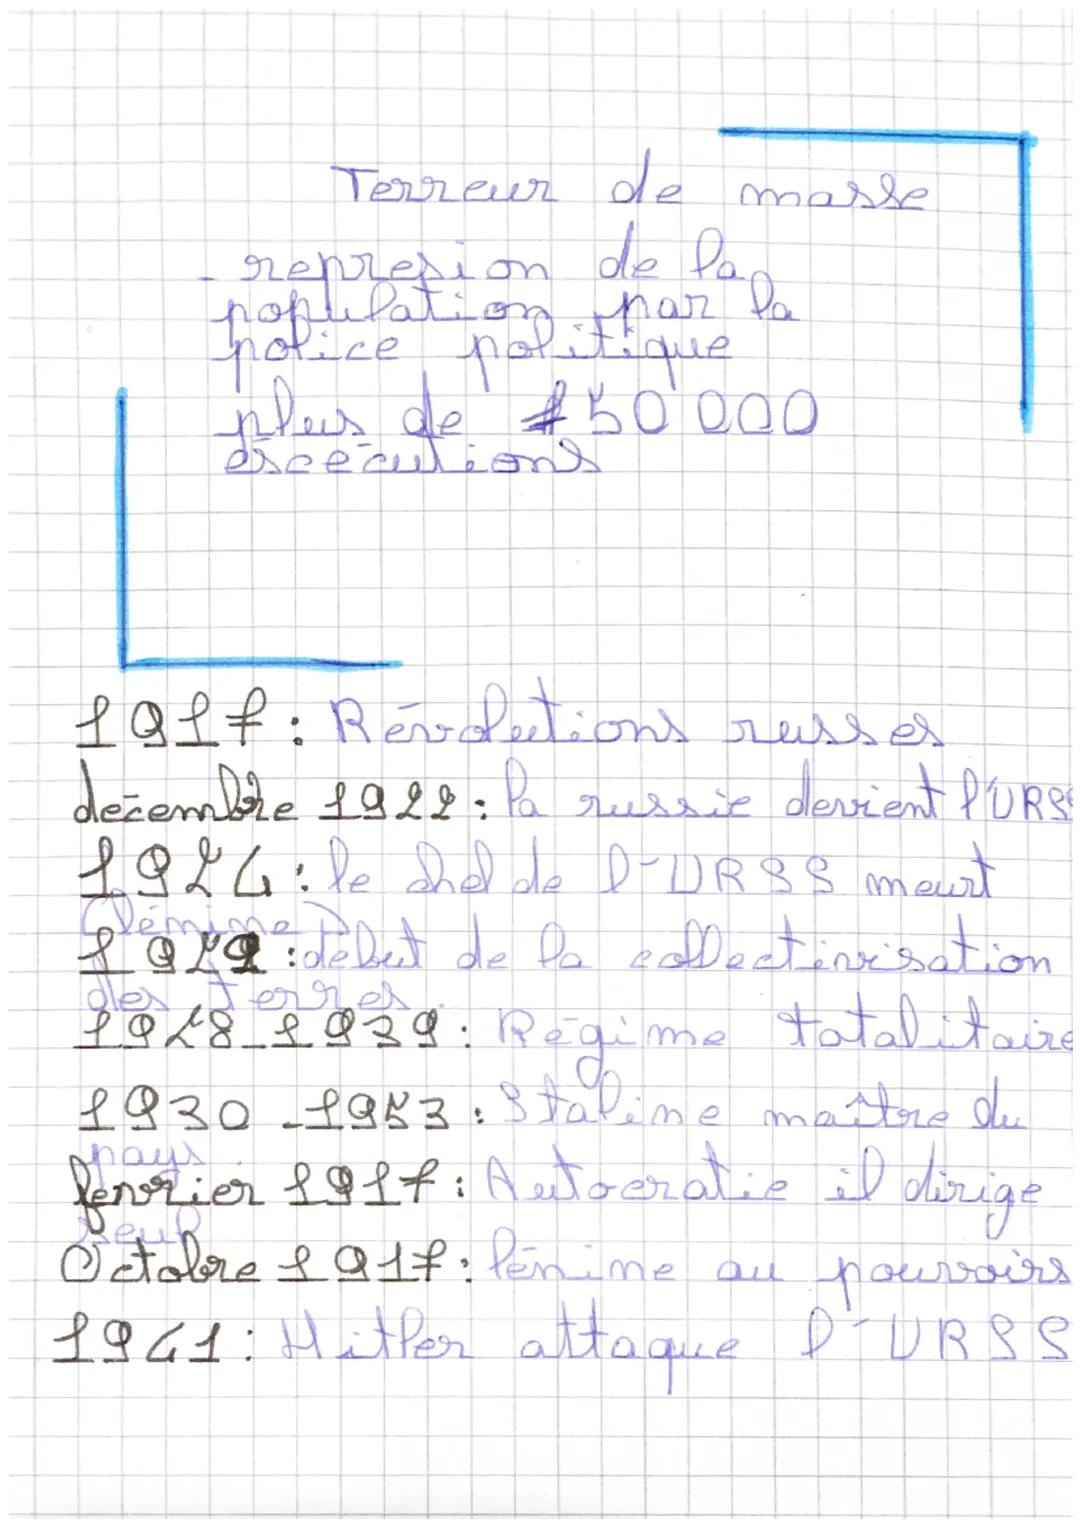 Terreur de masse
- represion de la
population par la
police politique
plus de 50 000
excécutions
1917 : Révolutions russes
decembre 1922 : la russie devient l'URSS
1924 : le chef de l'URSS meurt
(lénine)
1929 : debut de la collectivisation
des terres.
1928-1939 : Régime totalitaire
1930-1953 : Staline maître du
pays.
fevrier 1917 : Autocratie il dirige
seul
Octobre 1917 : lénine au pouvoirs
1941 : Hitler attaque l'URSS